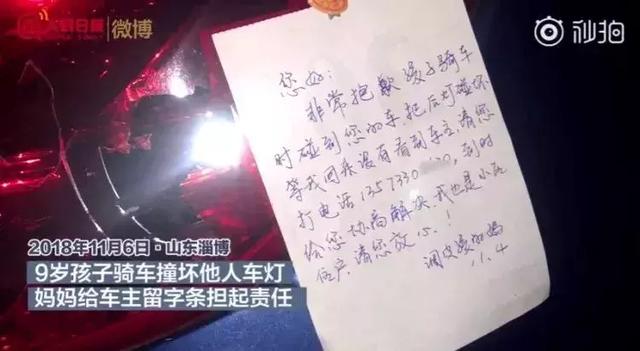 微博
秒拍
您好:
非常抱歉孩子骑车
时碰到您的车把后灯碰坏
等我回来没有看到车主.请您
打电话 ,到时
给您协商解决.我也是小区
住户.请您放心!
调皮孩的妈
11.4
2018年11月6日·山东淄博
9岁孩子骑车撞坏他人车灯
妈妈给车主留字条担起责任